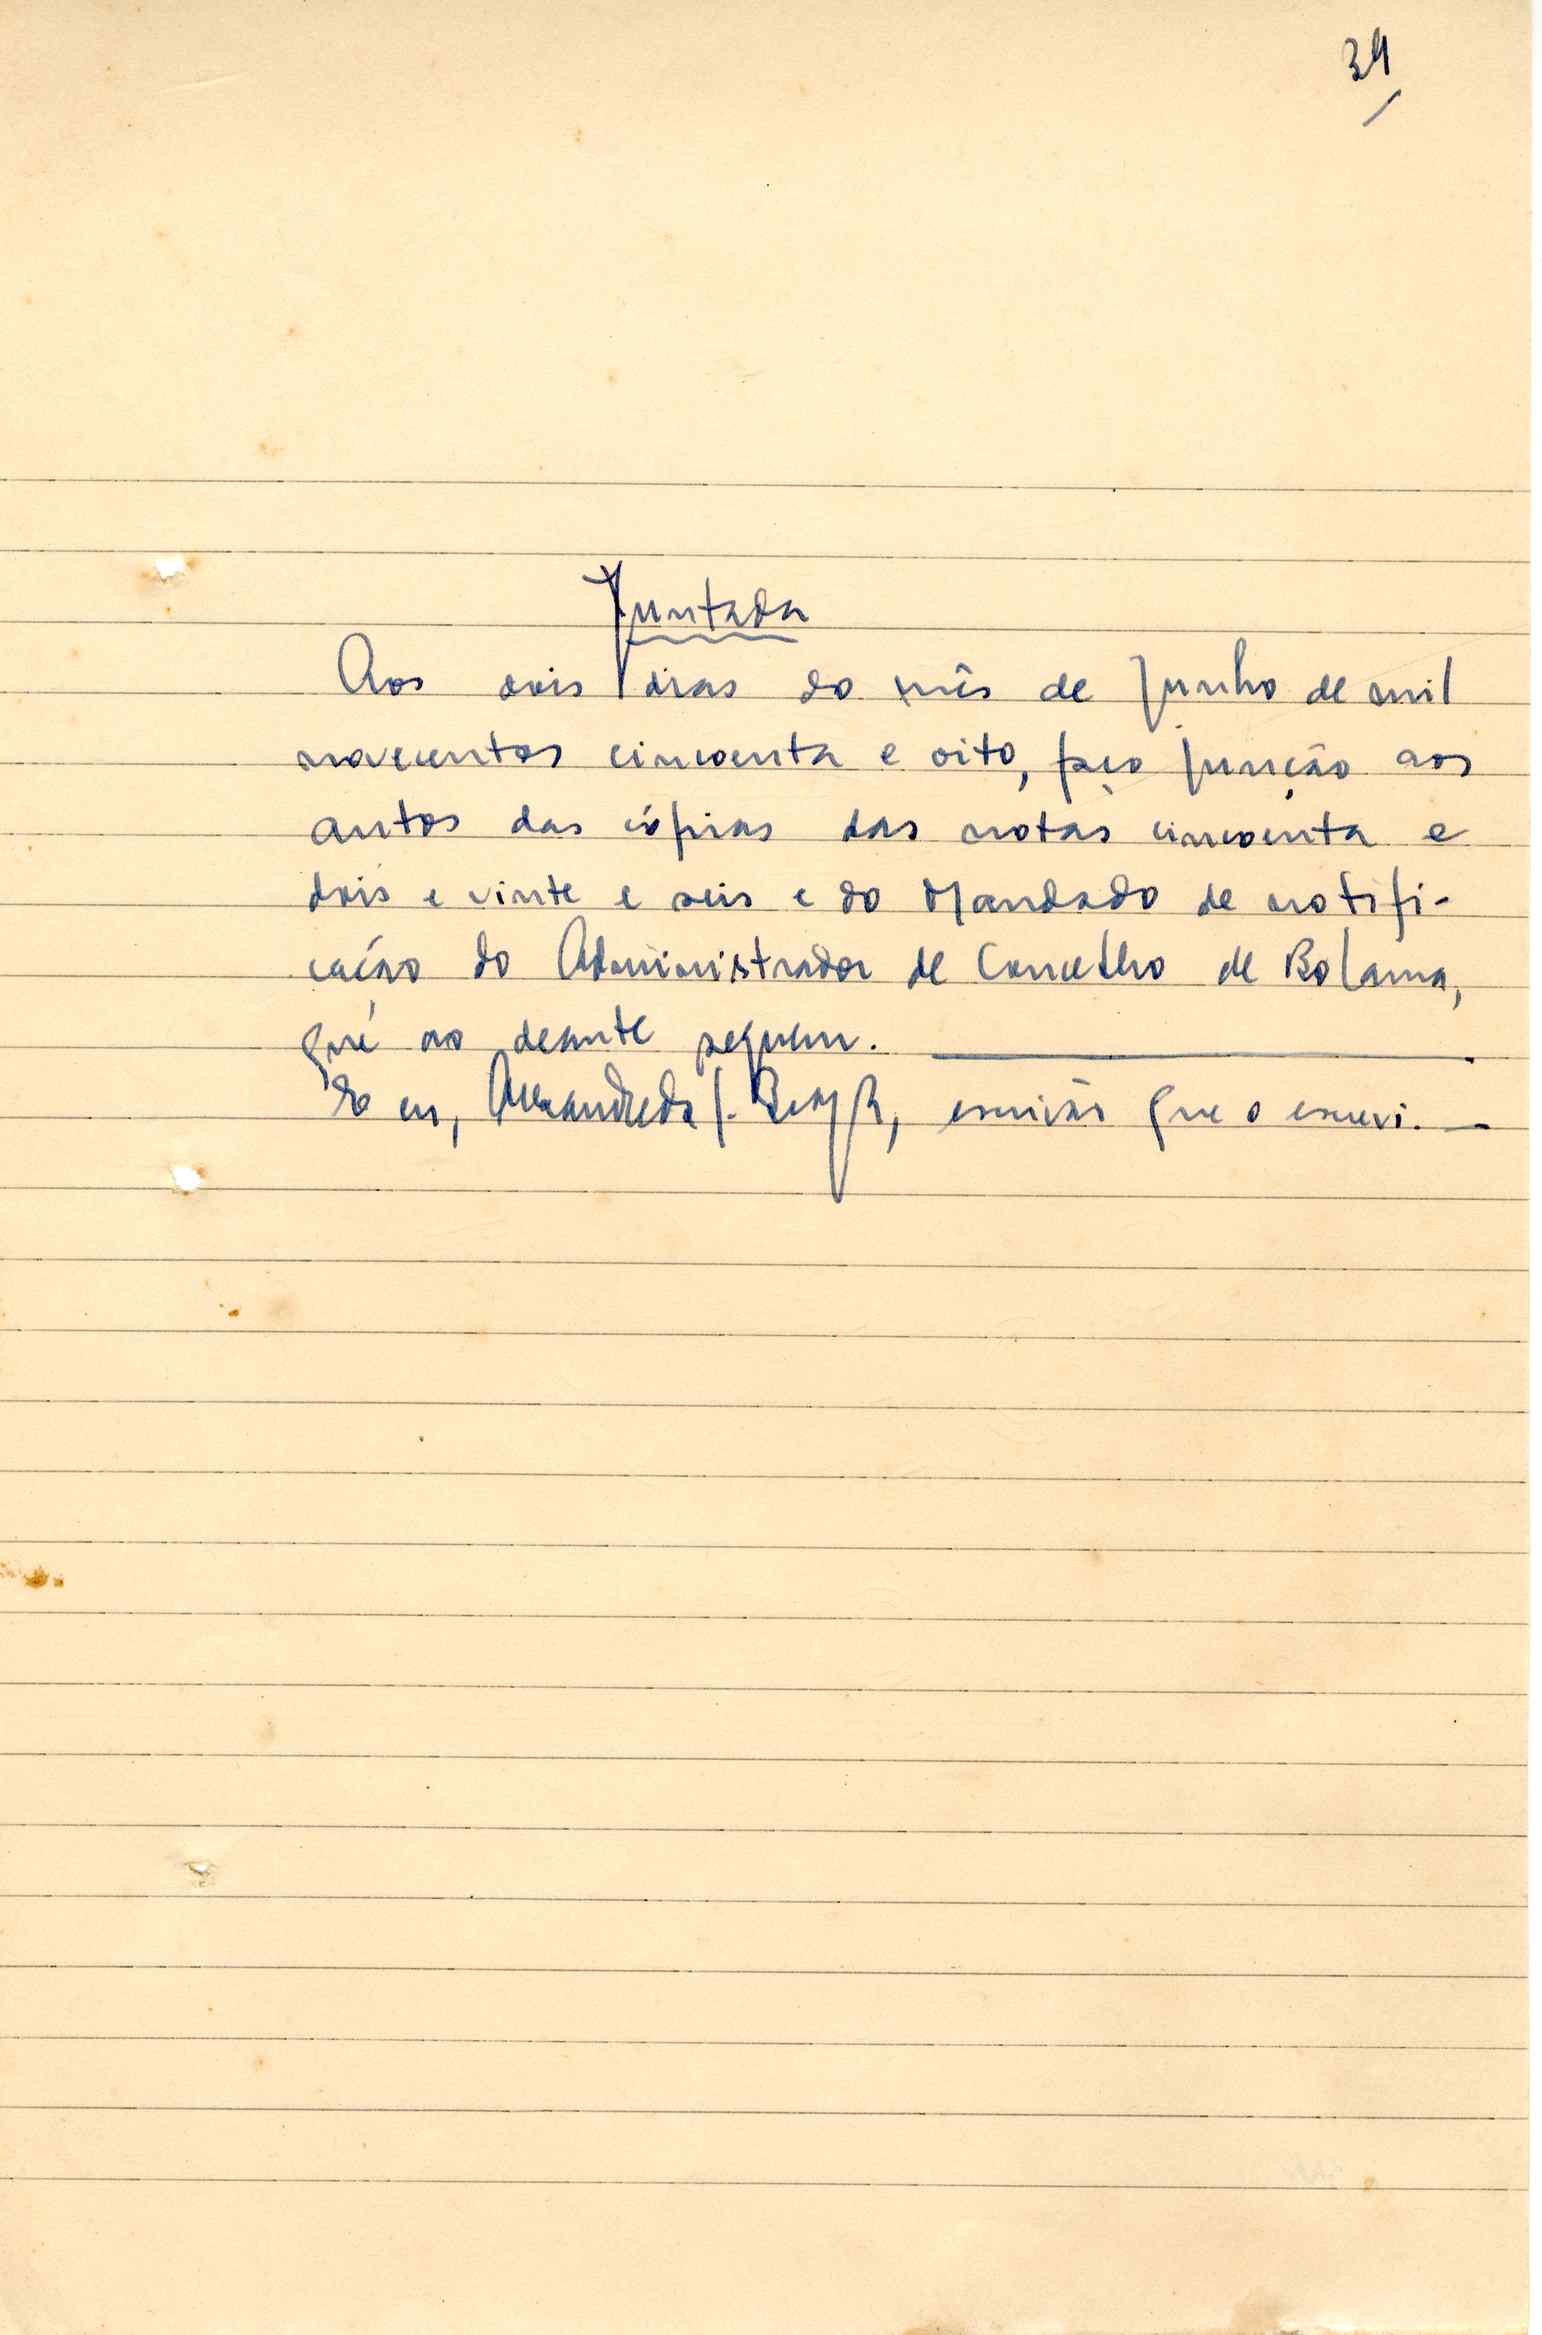 34
Juntada
Aos dois dias do mês de Junho de mil
novecentos cincoenta e oito, faço junção aos
autos das cópias das notas cincoenta e
dois e vinte e seis e do Mandado de notifi-
cação do Administrador de Concelho de Bolama,
que ao deante seguem.
E eu, escrivão que o escrevi.